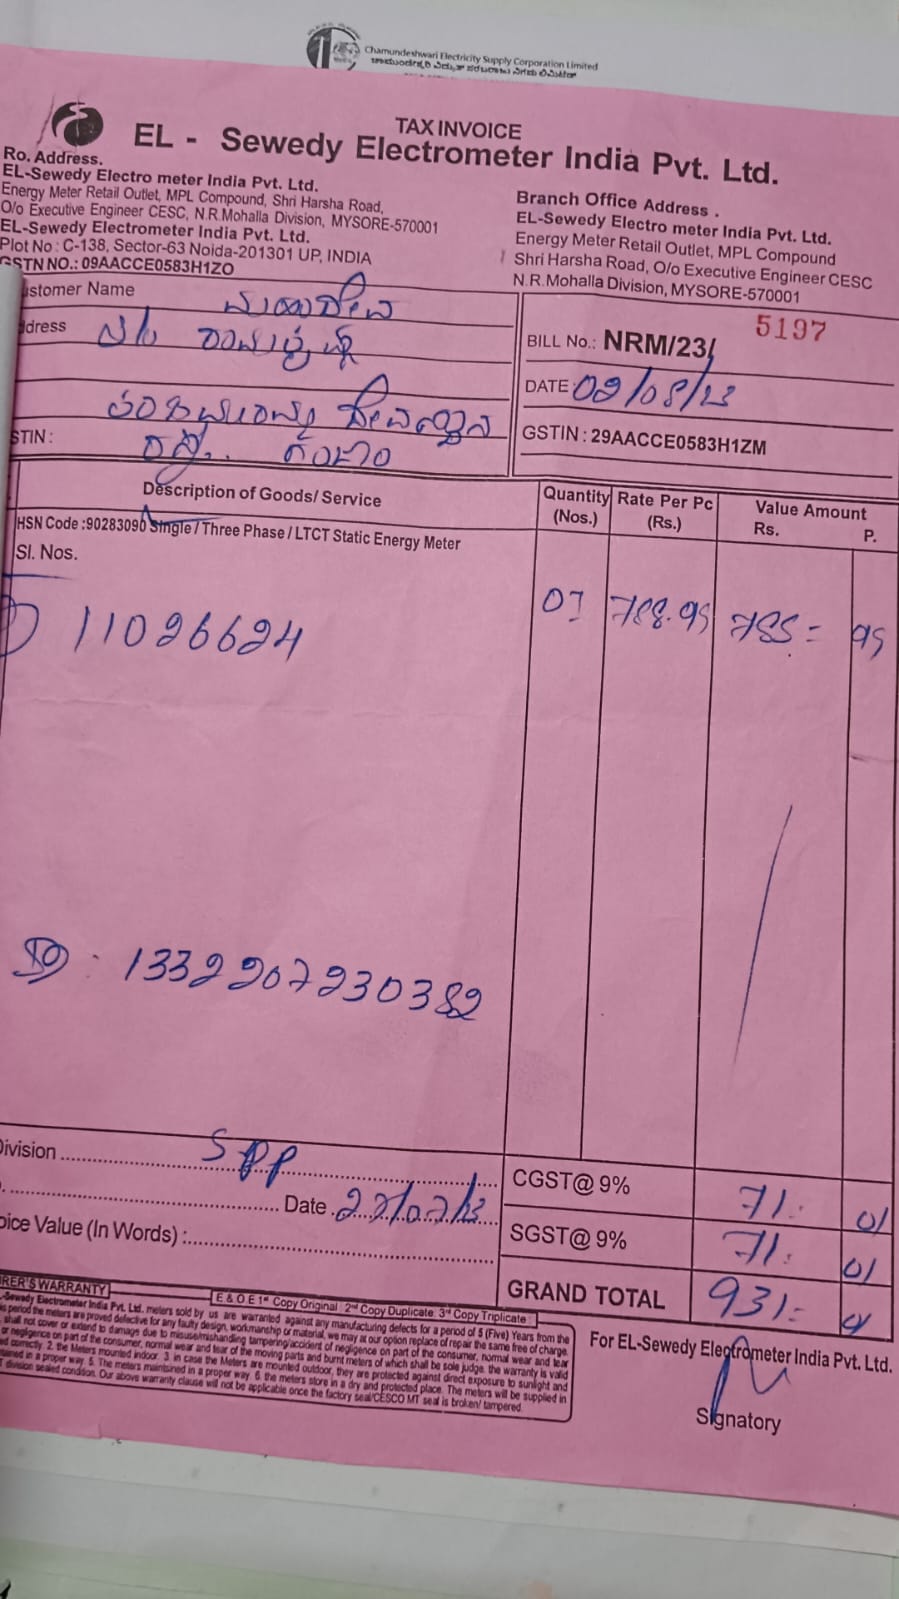 Chamundeshwari Electricity Supply Corporation Limited
ಚಾಮುಂಡೇಶ್ವರಿ ವಿದ್ಯುತ್ ಸರಬರಾಜು ನಿಗಮ ಲಿಮಿಟೆಡ್
TAX INVOICE
EL - Sewedy Electrometer India Pvt. Ltd.
Ro. Address.
EL-Sewedy Electro meter India Pvt. Ltd.
Energy Meter Retail Outlet, MPL Compound, Shri Harsha Road,
O/o Executive Engineer CESC, N.R.Mohalla Division, MYSORE-570001
EL-Sewedy Electrometer India Pvt. Ltd.
Plot No : C-138, Sector-63 Noida-201301 UP, INDIA
GSTN NO.: 09AACCE0583H1ZO
Branch Office Address .
EL-Sewedy Electro meter India Pvt. Ltd.
Energy Meter Retail Outlet, MPL Compound
Shri Harsha Road, O/o Executive Engineer CESC
N.R.Mohalla Division, MYSORE-570001
ustomer Name
ddress
STIN :
5197
BILL No.: NRM/23/
DATE: 02/08/23
GSTIN : 29AACCE0583H1ZM
Description of Goods/ Service
Quantity (Nos.)
Rate Per Pc (Rs.)
Value Amount
Rs. P.
HSN Code :90283090 Single / Three Phase / LTCT Static Energy Meter
Sl. Nos.
11026624 01 788.95
95
1332207230382
Division SPP
Date 22/07/23
oice Value (In Words) :
CGST@ 9% 71. 01
SGST@ 9% 71. 01
GRAND TOTAL 931=
RER'S WARRANTY
E & O E 1st Copy Original 2nd Copy Duplicate 3rd Copy Triplicate
-Sewedy Electrometer India Pvt. Ltd. meters sold by us are warranted against any manufacturing defects for a period of 5 (Five) Years from the
is period the meters are proved defective for any faulty design, workmanship or material, we may at our option replace of repair the same free of charge.
shall not cover or extend to damage due to misuse/mishandling tampering/accident of negligence on part of the consumer, normal wear and tear
or negligence on part of the consumer, normal wear and tear of the moving parts and burnt meters of which shall be sole judge. the warranty is valid
correctly. 2. the Meters mounted indoor. 3. in case the Meters are mounted outdoor, they are protected against direct exposure to sunlight and
tained in a proper way. 5. The meters maintained in a proper way. 6. the meters store in a dry and protected place. The meters will be supplied in
T division sealed condition. Our above warranty clause will not be applicable once the factory seal/CESCO MT seal is broken/ tampered.
For EL-Sewedy Electrometer India Pvt. Ltd.
Signatory